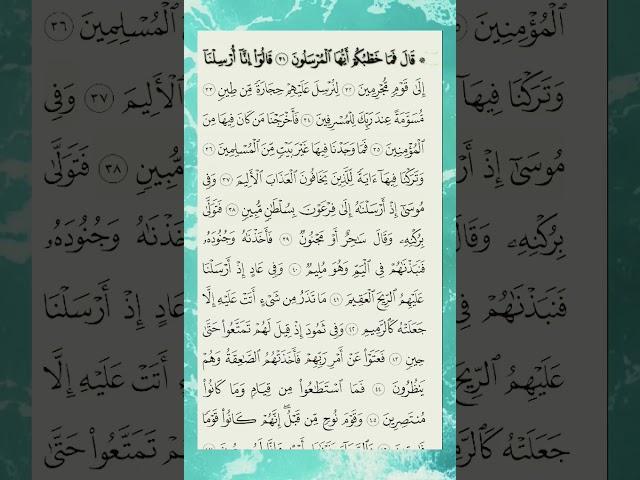 ۞ قَالَ فَمَا خَطْبُكُمْ أَيُّهَا ٱلْمُرْسَلُونَ ٣١ قَالُوٓا۟ إِنَّآ أُرْسِلْنَآ
إِلَىٰ قَوْمٍ مُّجْرِمِينَ ٣٢ لِنُرْسِلَ عَلَيْهِمْ حِجَارَةً مِّن طِينٍ ٣٣
مُّسَوَّمَةً عِندَ رَبِّكَ لِلْمُسْرِفِينَ ٣٤ فَأَخْرَجْنَا مَن كَانَ فِيهَا مِنَ
ٱلْمُؤْمِنِينَ ٣٥ فَمَا وَجَدْنَا فِيهَا غَيْرَ بَيْتٍ مِّنَ ٱلْمُسْلِمِينَ ٣٦
وَتَرَكْنَا فِيهَآ ءَايَةً لِّلَّذِينَ يَخَافُونَ ٱلْعَذَابَ ٱلْأَلِيمَ ٣٧ وَفِى
مُوسَىٰٓ إِذْ أَرْسَلْنَٰهُ إِلَىٰ فِرْعَوْنَ بِسُلْطَٰنٍ مُّبِينٍ ٣٨ فَتَوَلَّىٰ
بِرُكْنِهِۦ وَقَالَ سَٰحِرٌ أَوْ مَجْنُونٌ ٣٩ فَأَخَذْنَٰهُ وَجُنُودَهُۥ
فَنَبَذْنَٰهُمْ فِى ٱلْيَمِّ وَهُوَ مُلِيمٌ ٤٠ وَفِى عَادٍ إِذْ أَرْسَلْنَا
عَلَيْهِمُ ٱلرِّيحَ ٱلْعَقِيمَ ٤١ مَا تَذَرُ مِن شَىْءٍ أَتَتْ عَلَيْهِ إِلَّا
جَعَلَتْهُ كَٱلرَّمِيمِ ٤٢ وَفِى ثَمُودَ إِذْ قِيلَ لَهُمْ تَمَتَّعُوا۟ حَتَّىٰ
حِينٍ ٤٣ فَعَتَوْا۟ عَنْ أَمْرِ رَبِّهِمْ فَأَخَذَتْهُمُ ٱلصَّٰعِقَةُ وَهُمْ
يَنظُرُونَ ٤٤ فَمَا ٱسْتَطَٰعُوا۟ مِن قِيَامٍ وَمَا كَانُوا۟
مُنتَصِرِينَ ٤٥ وَقَوْمَ نُوحٍ مِّن قَبْلُ ۖ إِنَّهُمْ كَانُوا۟ قَوْمًا